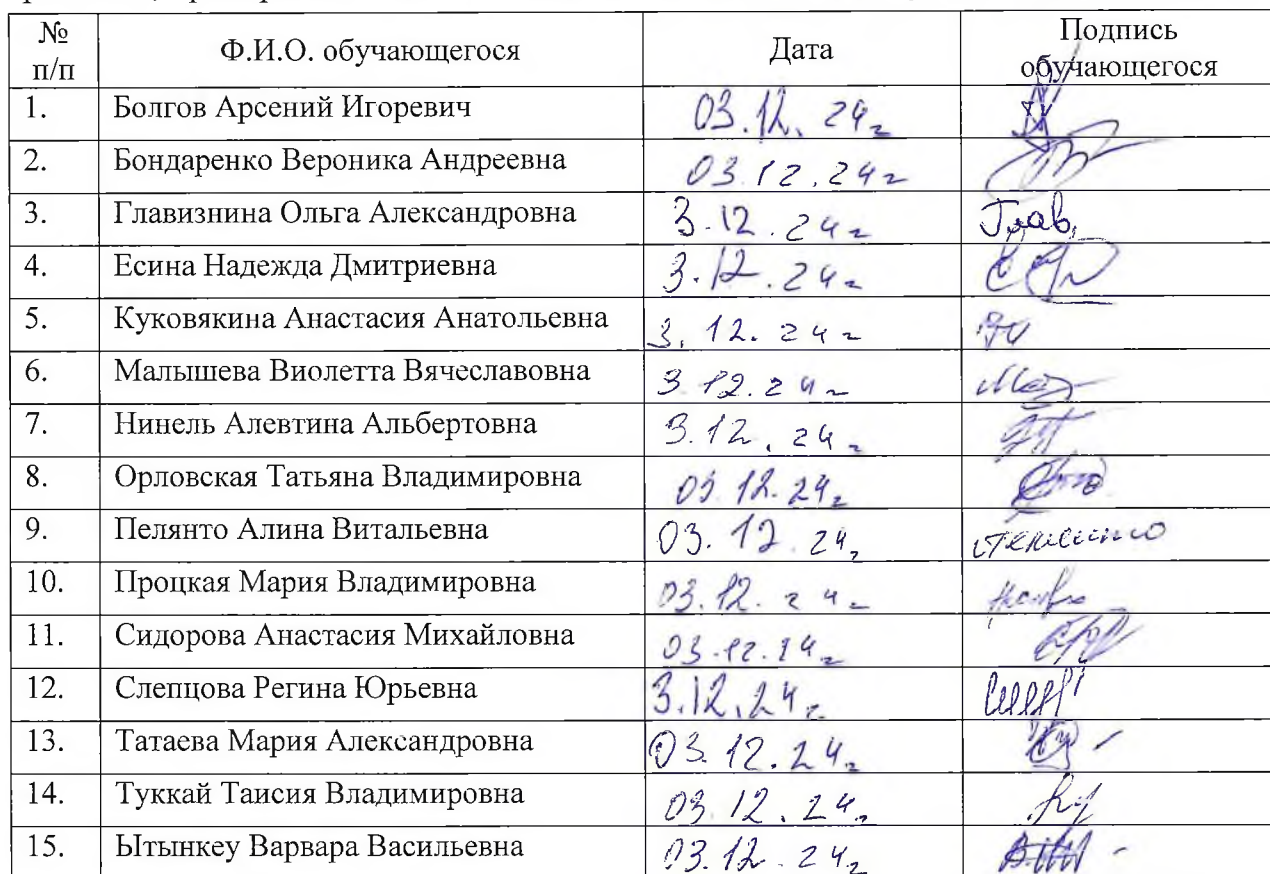 № п/п Ф.И.О. обучающегося Дата Подпись обучающегося
1. Болгов Арсений Игоревич 03.12.24г
2. Бондаренко Вероника Андреевна 03.12.24г
3. Главизнина Ольга Александровна 3.12.24г Глав,
4. Есина Надежда Дмитриевна 3.12.24г
5. Куковякина Анастасия Анатольевна 3.12.24г
6. Малышева Виолетта Вячеславовна 3.12.24г
7. Нинель Алевтина Альбертовна 3.12.24г
8. Орловская Татьяна Владимировна 03.12.24г
9. Пелянто Алина Витальевна 03.12.24г
10. Процкая Мария Владимировна 03.12.24г
11. Сидорова Анастасия Михайловна 03.12.24г
12. Слепцова Регина Юрьевна 3.12.24г
13. Татаева Мария Александровна 03.12.24г
14. Туккай Таисия Владимировна 03.12.24г
15. Ытынкеу Варвара Васильевна 03.12.24г